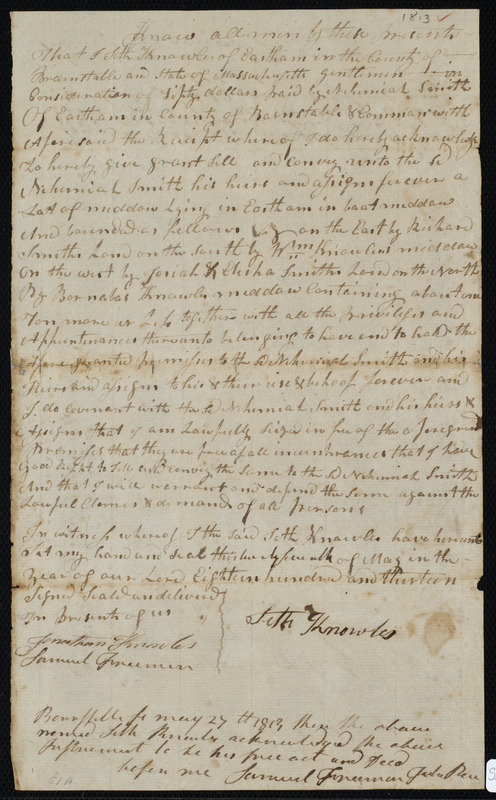 1813
Know all men by these presents
That I Seth Knowles of Eastham in the County of
Barnstable and State of Massachusetts gentlemen in
Consideration of fifty dollars Paid by Nehemiah Smith
Of Eastham in County of Barnstable & Common with
Aforesaid the Receipt where of I do hereby acknowledge
Do hereby give grant Sell and Convey unto the sd
Nehemiah Smith his heirs and assigns forever a
Lot of meddow Lying in Eastham in boat meddow
And bounded as follows on the East by Richard
Smiths Land on the South by Wm Knowles meddow
On the west by Josiah & Elisha Smiths Land on the North
By Barnabas Knowles meddow Containing about one
Ton more or Less together with all the Privileges and
Appurtinances thereunto belonging to have and to hold the
Afore granted Premises to the sd Nehemiah Smith and his
Heirs and assigns to his & their use & behoof forever and
I do Covenant with the sd Nehemiah Smith and his heirs &
Assigns that I am Lawfully Seized in fee of the aforegrand
Premises that they are free of all incumbrances that I have
Good Right to Sell and Convey the Same to the sd Nehemiah Smith
And that I will warrant and defend the Same against the
Lawful Claimes & demands of all Persons
In witness whereof I the said Seth Knowles have hereunto
Set my hand and Seal this twenty seventh of May in the
Year of our Lord Eighteen hundred and thirteen
Signed Sealed and delivered
In Presents of us
Seth Knowles
Jonathan Knowles
Samuel Freeman
Barnstable ss may 27th 1813 then the above
named Seth Knowles acknowledged the above
Instrument to be his free act and Deed
before me Samuel Freeman